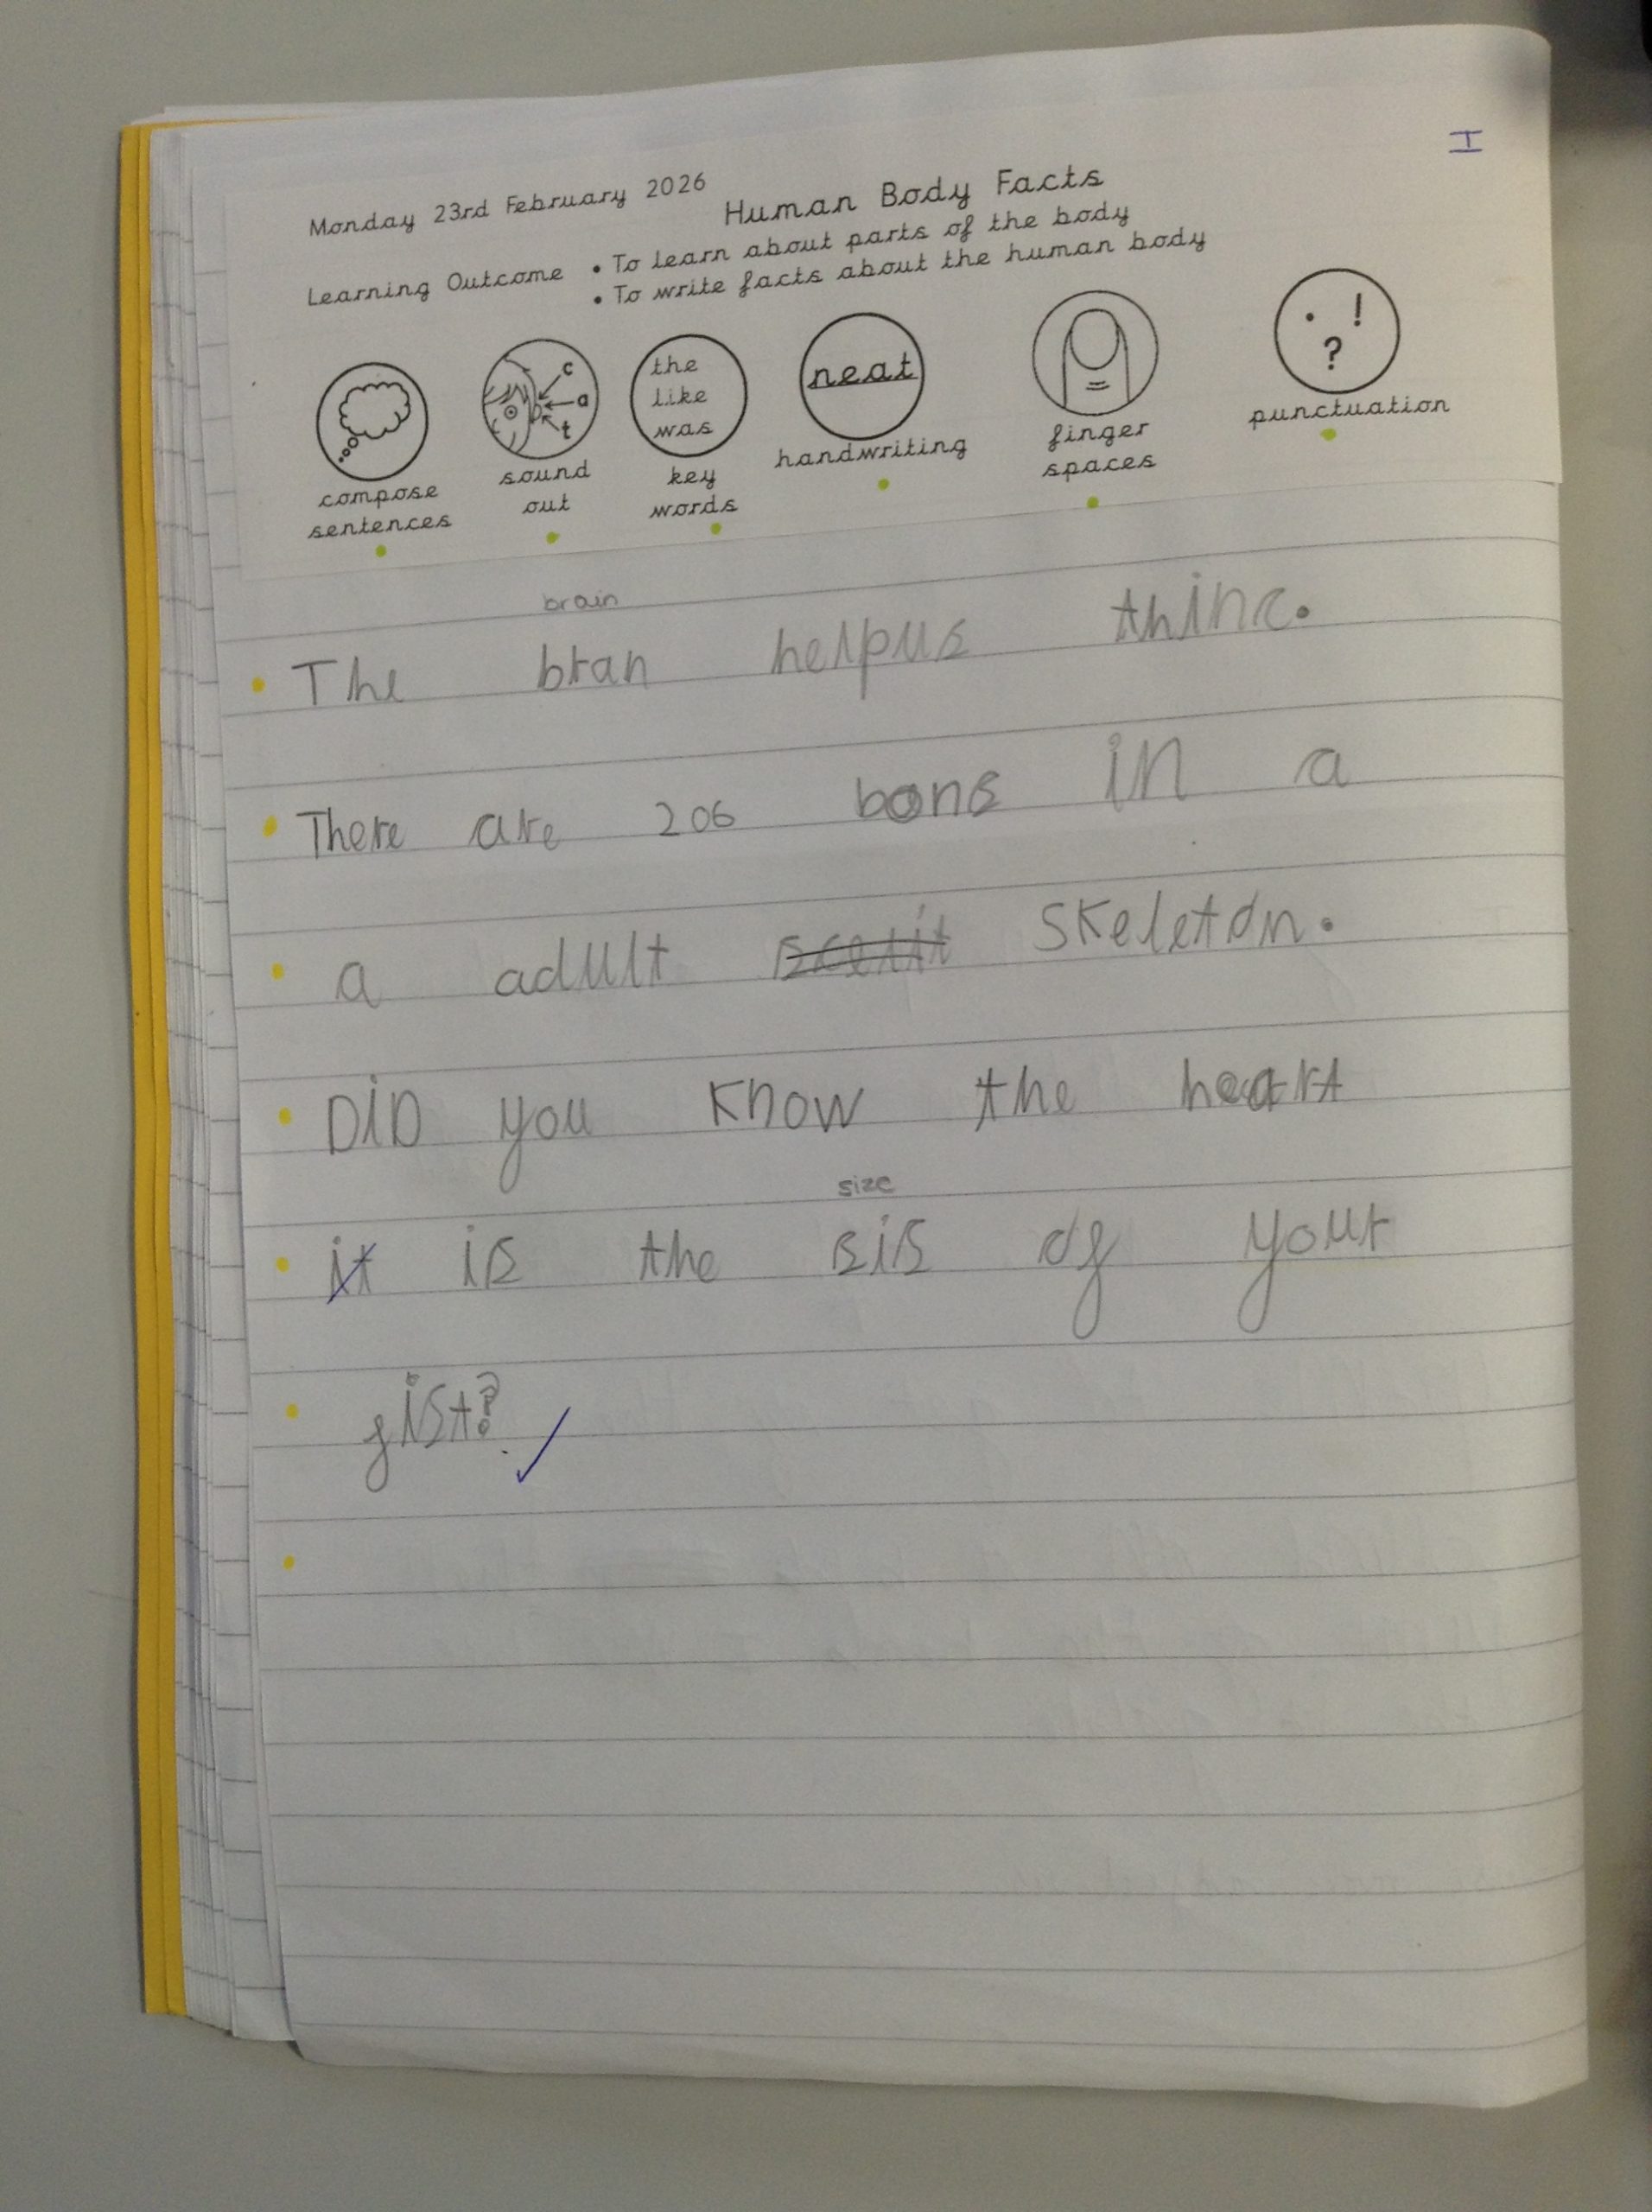 I
Monday 23rd February 2026
Human Body Facts
Learning Outcome • To learn about parts of the body
• To write facts about the human body
c
a
t
the
like
was
neat
. !
?
compose
sentences
sound
out
key
words
handwriting
finger
spaces
punctuation
brain
The bran helpus thinc.
There are 206 bons in a
a adult skeleton.
DiD you know the heart
size
it is the sis of your
fist?